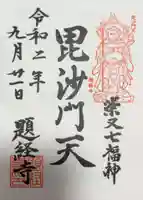 柴又七福神
毘沙門天
令和二年
九月廿一日
題経寺